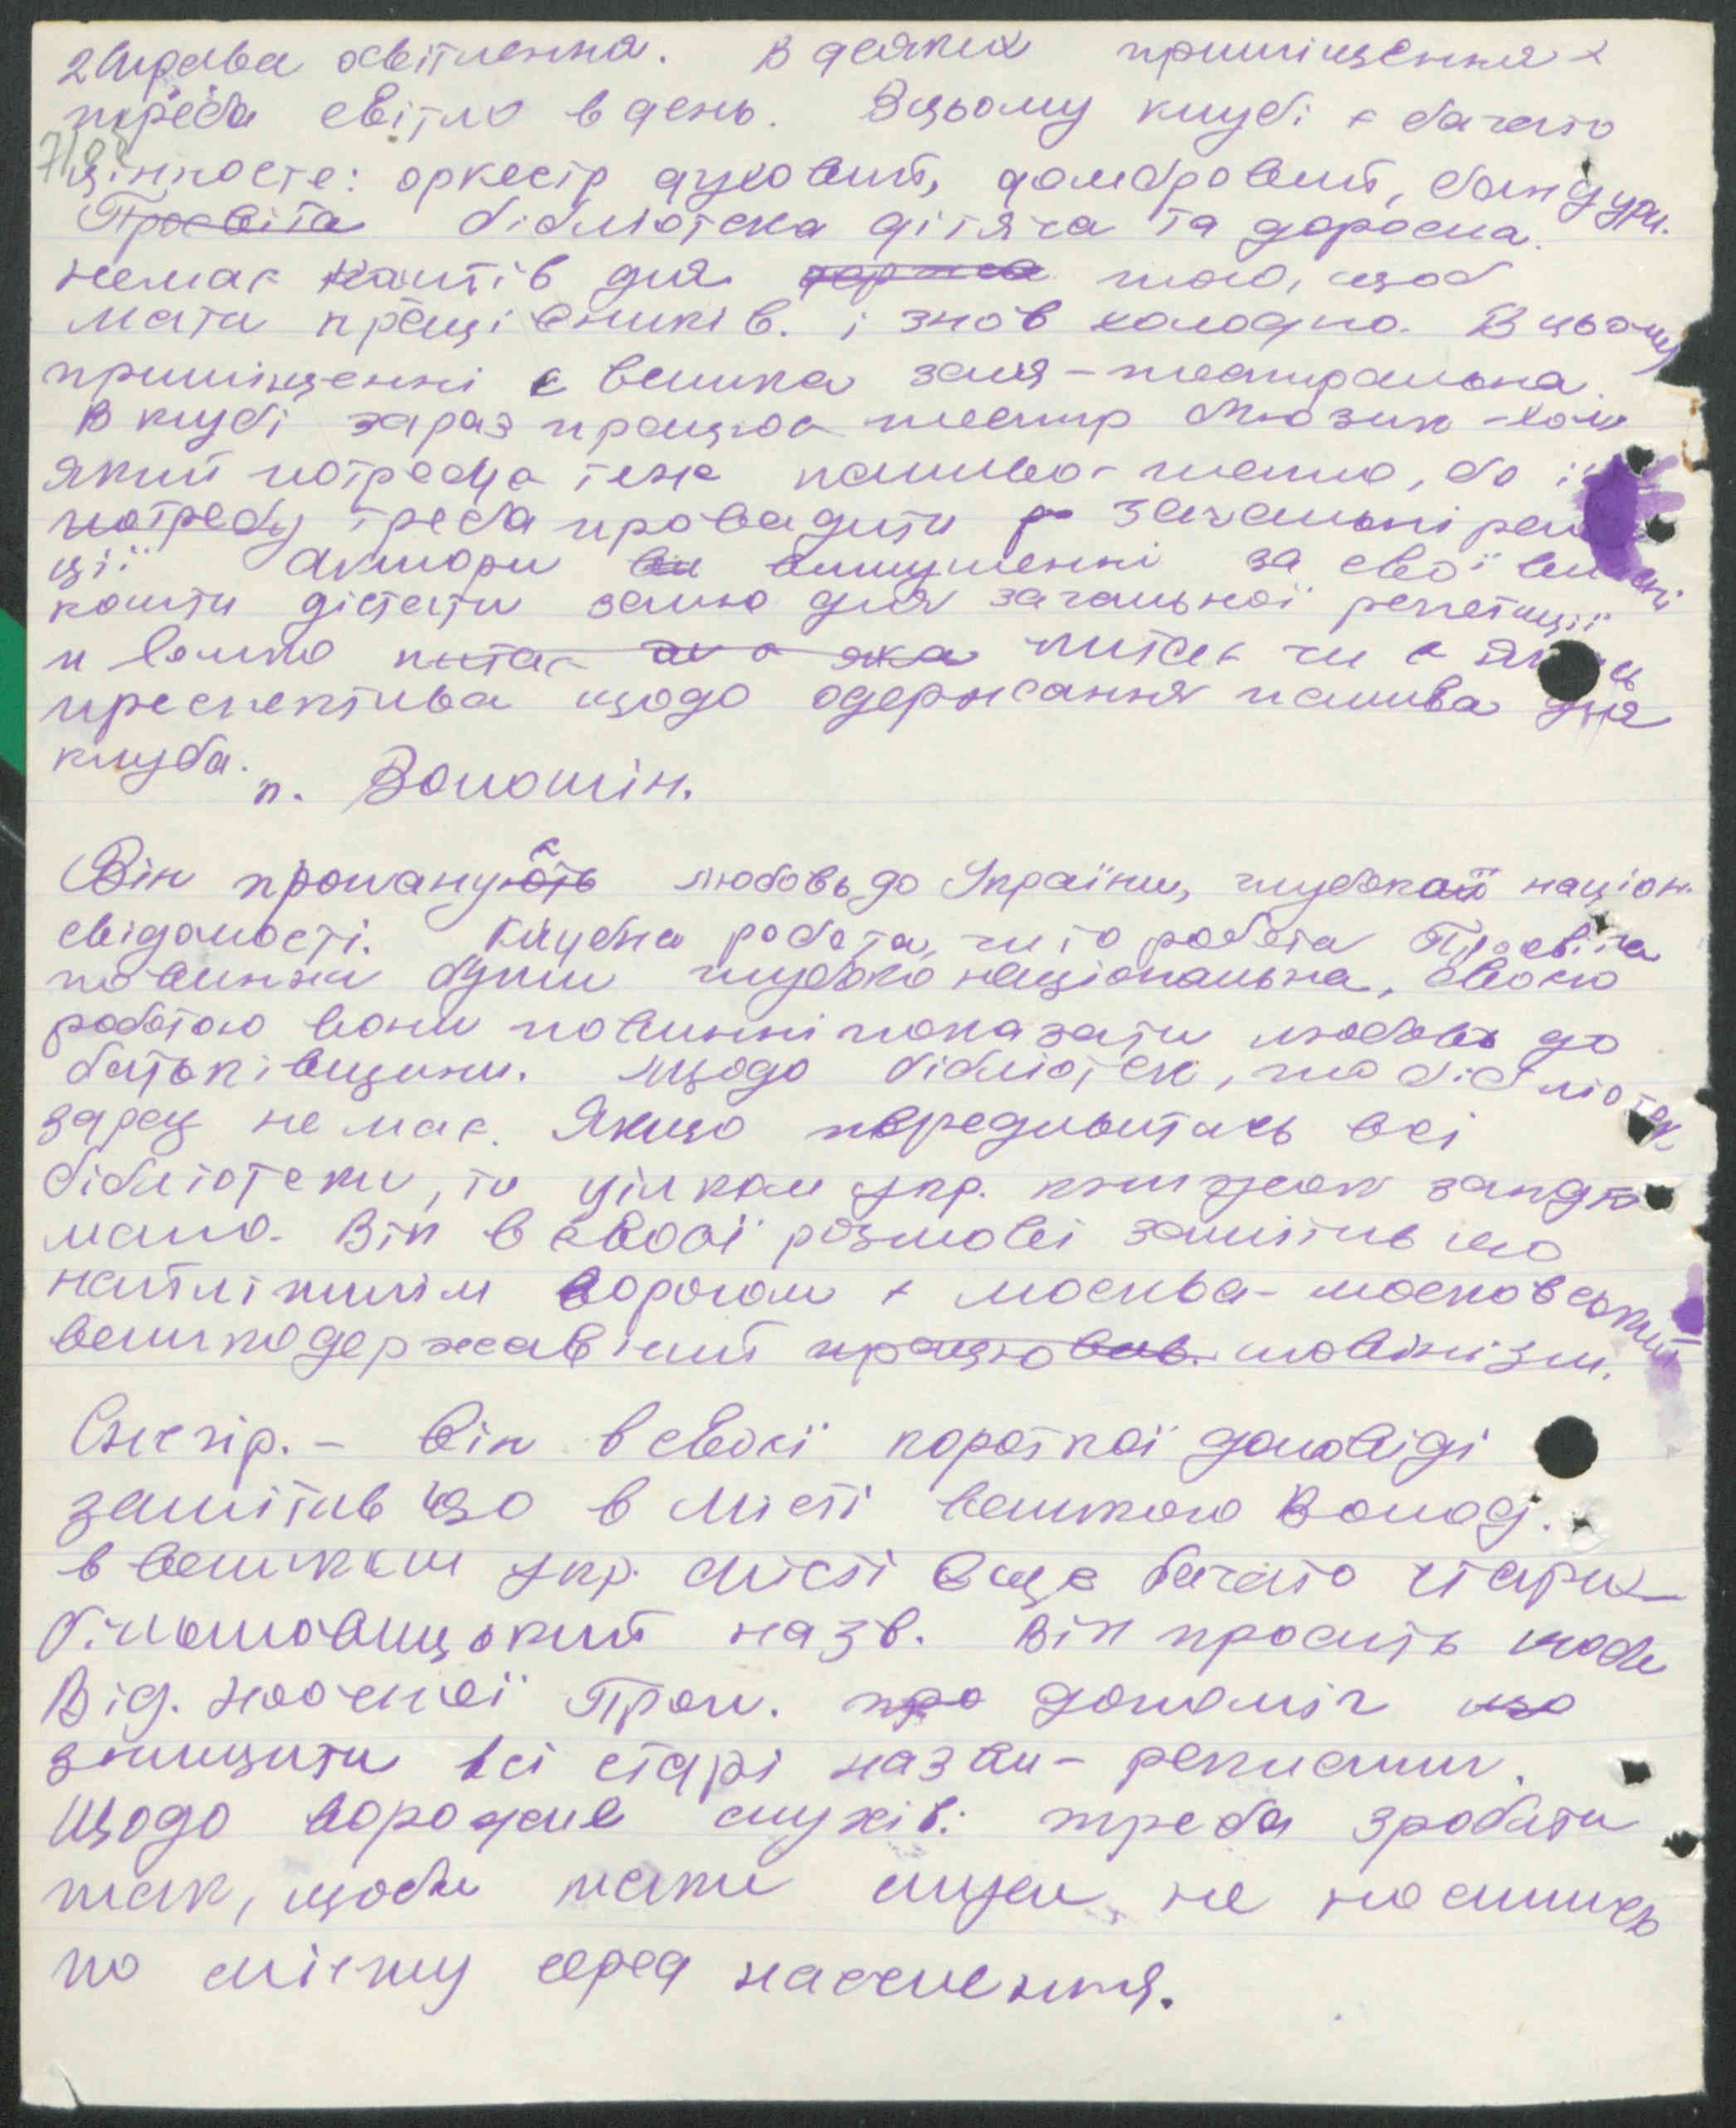 2 справа освітлення. В деяких приміщеннях
треба світло в день. В цьому клубі є багато
цінносте: оркестр духовий, домбровий, бандури.
Просвіта бібліотека дітяча та доросла.
немає коштів для того, щоб
мати працівників. і знов холодно. В цьому
приміщенні є велика заля - театральна.
В клубі зараз працює театр Мюзик-хол
який потребує теж паливо - тепло, бо їм
потребу треба провадити загальні репе
ції. Актори вимушенні за свої власні
кошти дістати залю для загальної репетиції
питає чи є якась
преспектива щодо одержання палива для
клуба.
п. Волошін.
Він пропанує любовь до України, глубокої націон.
свідомості. Клубна робота, чи то робота Просвіта
повинна бути глубоко національна, своєю
роботою вони повинні показати любовь до
батьківщини. Щодо бібліотек, то бібліотек
зараз немає. Якщо передивитись всі
бібліотеки, то цілком укр. книжок занадто
мало. Він в своєї розмові замітив що
найлікшим ворогом є москва - московський
великодержавіний працював. шовінізм.
Снєгір. - Він в своєї короткої доповіді
замітив що в місті великого Волод.
в великим укр. місті ще багато старих
більшовицький назв. Він просить щоби
Від. Ноосної Проп. про допоміг що
знищити всі старі назви - реклами.
Щодо ворожие слухів: треба зробити
так, щоби таки слухи не носились
по місту серед населення.